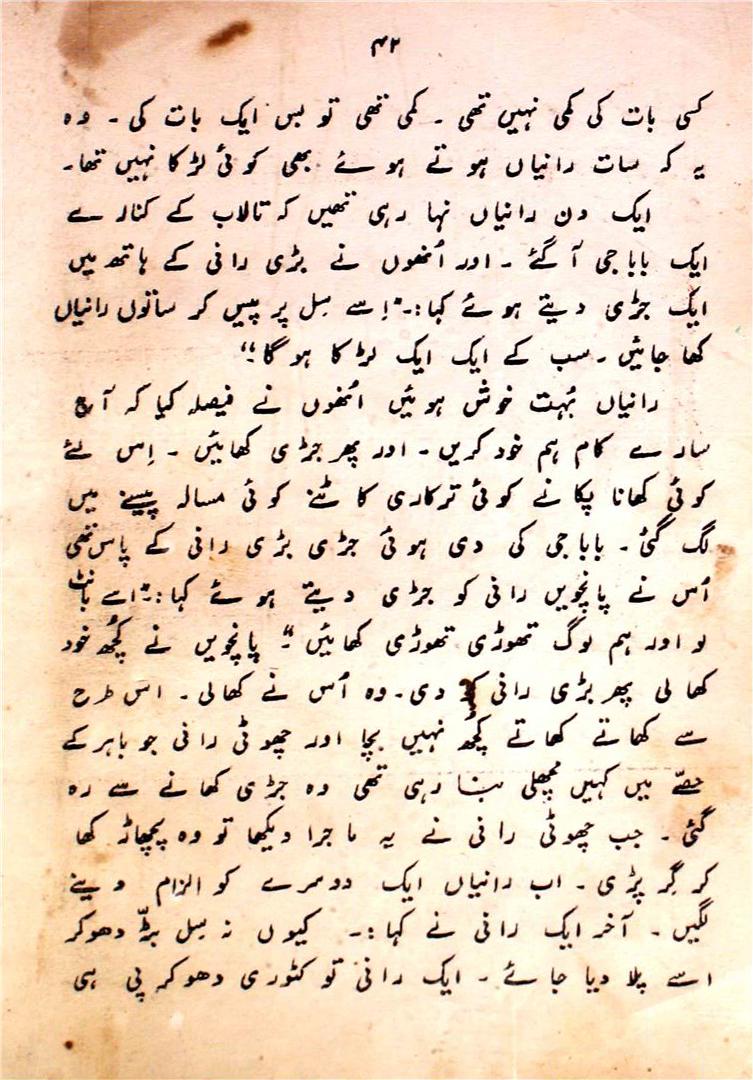 ۴۲
کسی بات کی کمی نہیں تھی ۔ کمی تھی تو بس ایک بات کی ۔ وہ
یہ کہ سات رانیاں ہوتے ہوئے بھی کوئی لڑکا نہیں تھا۔
ایک دن رانیاں نہا رہی تھیں کہ تالاب کے کنارے
ایک باباجی آگئے ۔ اور اُنھوں نے بڑی رانی کے ہاتھ میں
ایک جڑی دیتے ہوئے کہا:۔ "اِسے سِل پر پیس کر ساتوں رانیاں
کھا جائیں ۔ سب کے ایک ایک لڑکا ہوگا"
رانیاں بُہت خوش ہوئیں اُنھوں نے فیصلہ کیا کہ آج
سارے کام ہم خود کریں ۔ اور پھر جڑی کھائیں ۔ اِس لئے
کوئی کھانا پکانے کوئی ترکاری کاٹنے کوئی مسالہ پیسنے میں
لگ گئی ۔ باباجی کی دی ہوئی جڑی بڑی رانی کے پاس تھی
اُس نے پانچویں رانی کو جڑی دیتے ہوئے کہا:۔ "اسے بانٹ
لو اور ہم لوگ تھوڑی تھوڑی کھائیں ۔" پانچویں نے کچُھ خود
کھالی پھر بڑی رانی کو دی۔ وہ اُس نے کھالی ۔ اس طرح
سے کھاتے کھاتے کچُھ نہیں بچا اور چھوٹی رانی جو باہر کے
حصّے میں کہیں مچھلی بنا رہی تھی وہ جڑی کھانے سے رہ
گئی ۔ جب چھوٹی رانی نے یہ ماجرا دیکھا تو وہ پچھاڑ کھا
کر گِر پڑی ۔ اب رانیاں ایک دوسرے کو الزام دینے
لگیں ۔ آخر ایک رانی نے کہا:۔ کیوں نہ سِل بٹّہ دھوکر
اسے پلا دیا جائے ۔ ایک رانی تو کٹوری دھوکر پی ہی